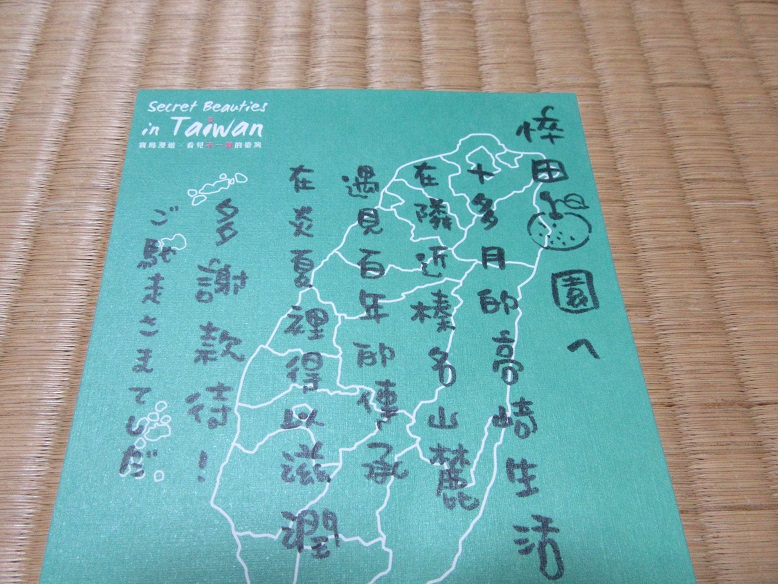 Secret Beauties
in Taiwan
看見不一樣的臺灣
悴田園へ
十多月的高崎生活
在隣近榛名山麓
遇見百年的傳承
在炎夏裡得以滋潤
多謝款待！
ご馳走さまてしだ